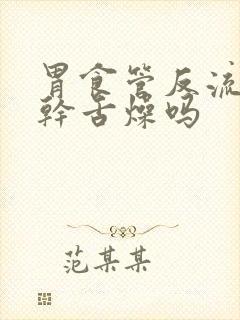 胃食管反流
幹舌燥吗
范某某